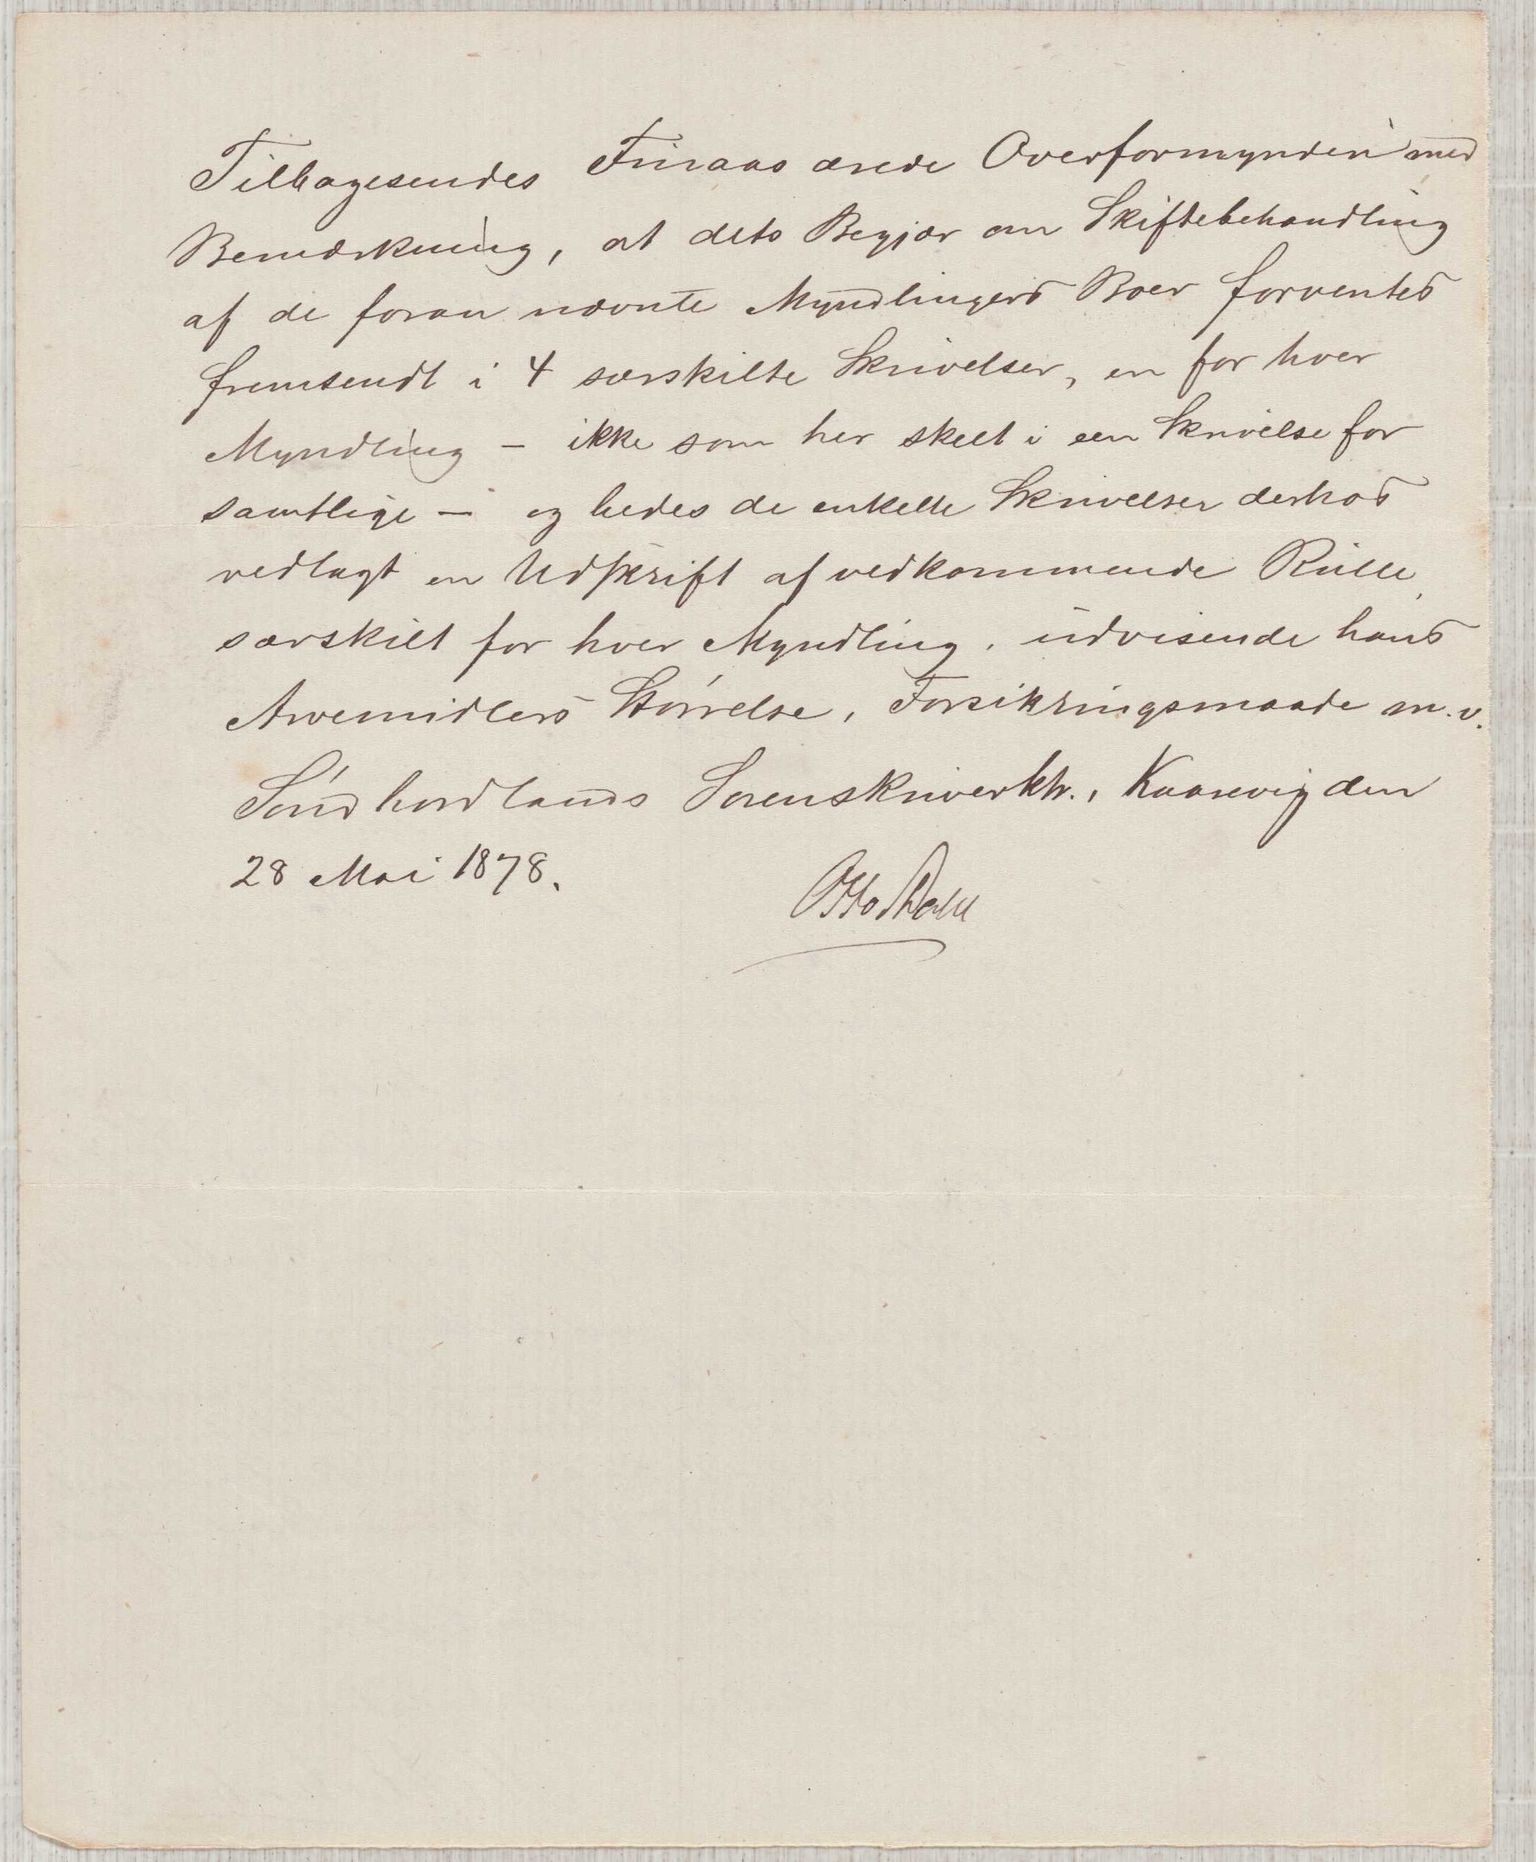 Tilbagesendes Finaas ærede Overformynderi med
Bemærkning, at dets Begjær om Skiftebehandling
af de foran nævnte Myndlingers Boer forventes
fremsendt i 4 særskilte Skrivelser, en for hver
Myndling - ikke som her skeet i een Skrivelse for
samtlige - og bedes de enkelte Skrivelser derhos
vedlagt en Udskrift af vedkommende Rulle,
særskilt for hver Myndling, udvisende hans
Arvemidlers Størrelse, Forsikringsmaade m.v.
Søndhordlands Sorenskriverktr., Kaarevig den
28 Mai 1878.
Otto Dahl